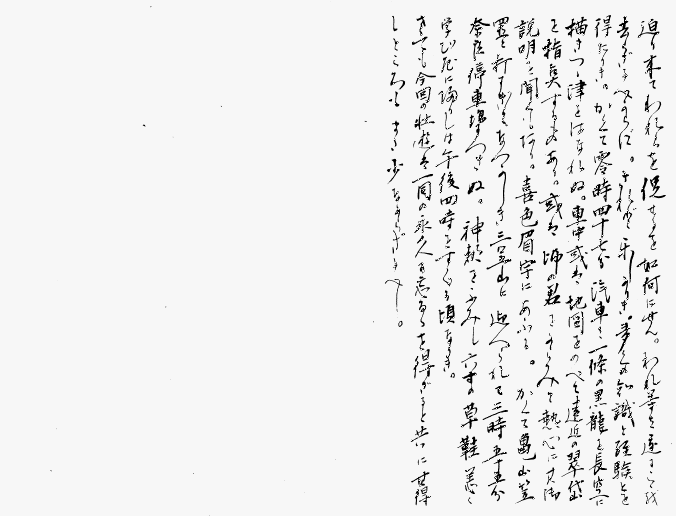 迫り来てわれらを促せるを如何にせん。われ等は遂にこゝを
去らざるべからず。されど楽しかりき。多くの知識と経験とを
得たりき。かくて零時四十七分汽車は一條の黒龍を長空に
描きつゝ津をはなれぬ。車中或は地図をのべて遠近の翠岱
を指點するもあり。或は師の君をかこみて熱心に其御
説明を聞くもあり。喜色眉宇にあふる。かくて亀山笠
置と打すぎてなつかしき三笠山に迎へられて三時五十五分
奈良停車場につきぬ。神都をふみし六十の草鞋恙なく
学び舎に帰りしは午後四時をすぐる頃なりき。
さても今回の壮遊は一同の永久に忘るゝを得ざると共に其得
しところも亦少なからざるべし。